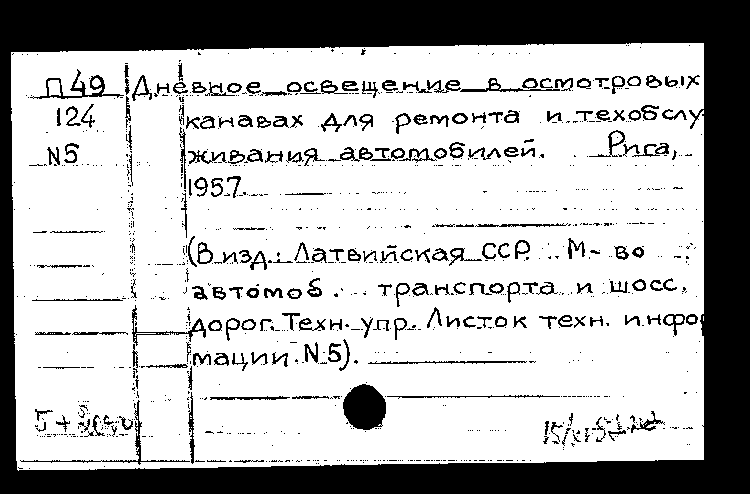 П 49 Дневное освещение в осмотровых
124 канавах для ремонта и техобслу-
N5 живания автомобилей. Рига,
1957.
(В изд.: Латвийская ССР. М-во
автомоб. транспорта и шосс.
дорог. Техн. упр. Листок техн. инфор
мации. N 5).